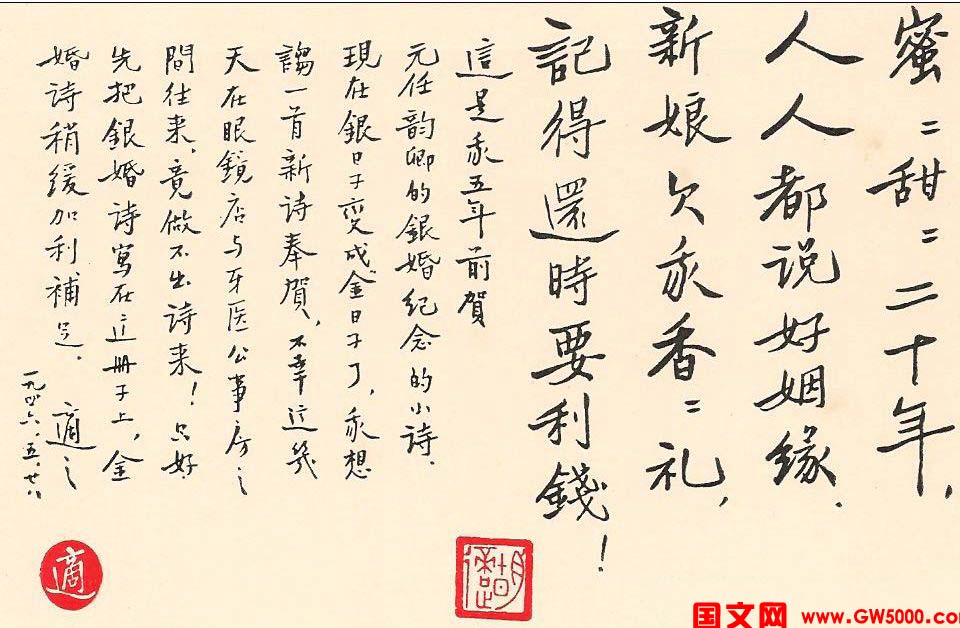 蜜〻甜〻二十年，
人人都说好姻缘．
新娘欠我香〻礼，
記得還時要利錢！
這是我五年前賀
元任韵卿的銀婚纪念的小诗．
現在銀日子变成金日子了，我想
謅一首新诗奉賀，不幸这幾
天在眼鏡店与牙医公事房之
間往来，竟做不出诗来！只好
先把銀婚诗寫在这册子上，金
婚诗稍缓加利補足．
適之
一九四六．五．廿八
適
胡適
国文网 www.GW5000.com